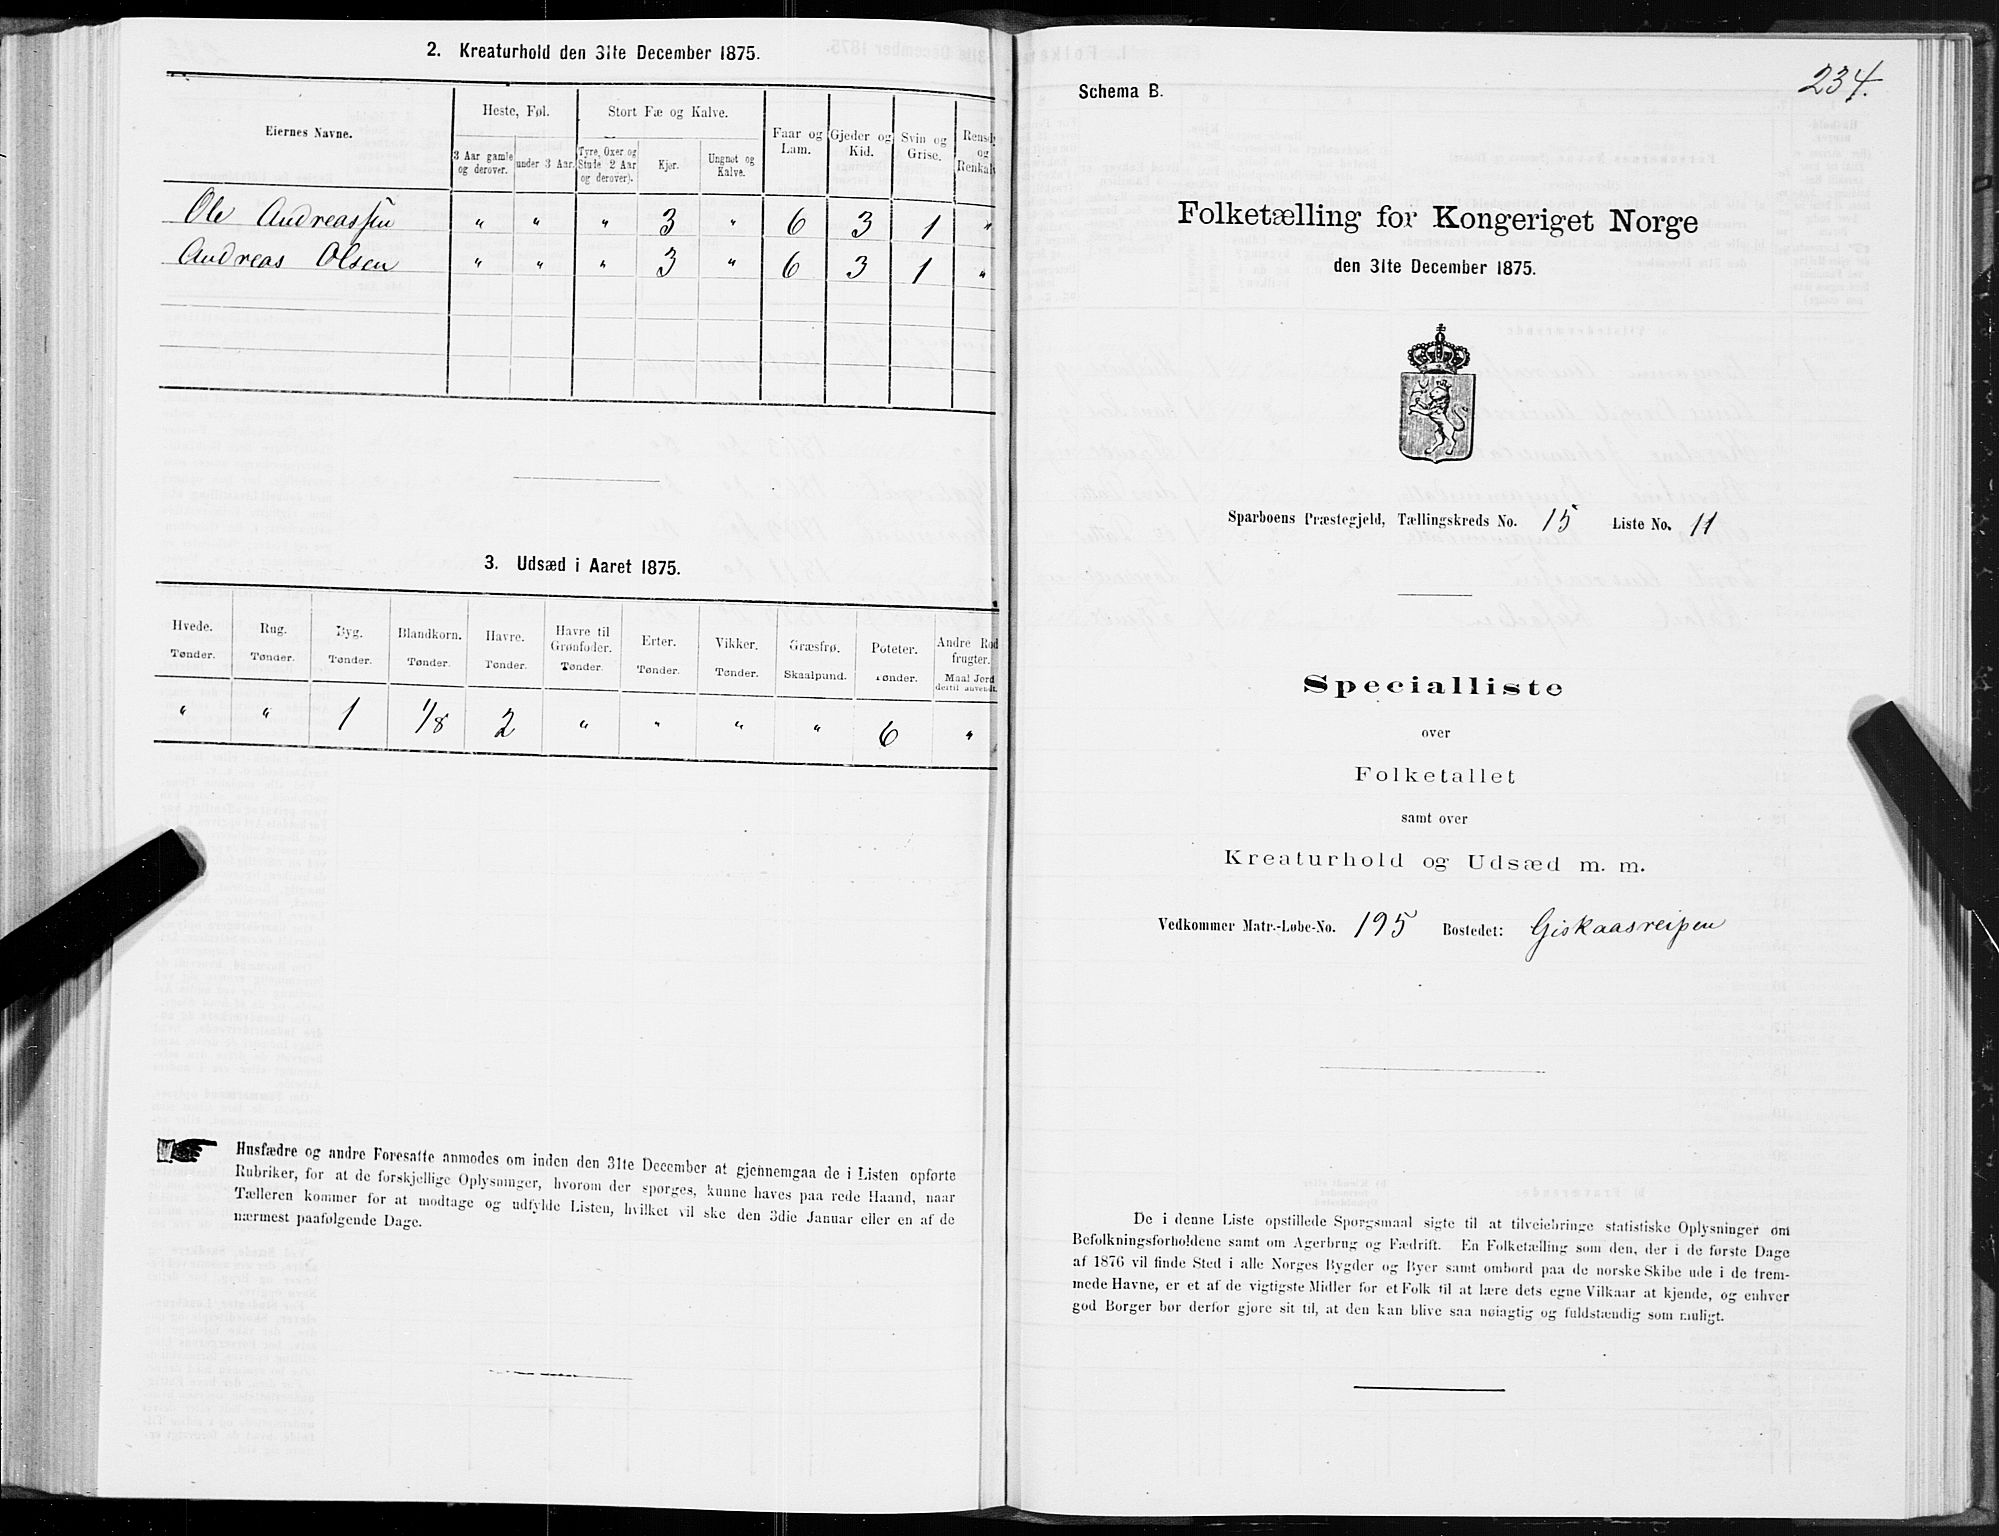 2. Kreaturhold den 31te December 1875.
Eiernes Navne.
Heste, Føl.
Stort Fæ og Kalve.
Faar og Lam.
Gjeder og Kid.
Svin og Grise.
3 Aar gamle og derover.
under 3 Aar.
Tyre, Oxer og Stude 2 Aar og derover).
Kjør.
Ungnøt og Kalve.
Ole Andreassen " " " 3 " 6 3 1 "
Andreas Olsen " " " 3 " 6 3 1 "
3. Udsæd i Aaret 1875.
Hvede. Rug. Byg. Blandkorn. Havre. Havre til Grønfoder. Erter. Vikker. Græsfrø. Poteter.
Tønder. Tønder. Tønder. Tønder. Tønder. Tønder. Tønder. Tønder. Skaalpund. Tønder. Maal Jord dertil anvendt.
" " 1 1/8 2 " " " " 6 "
Husfædre og andre Foresatte anmodes om inden den 31te December at gjennemgaa de i Listen opførte
Rubriker, for at de forskjellige Oplysninger, hvorom der spørges, kunne haves paa rede Haand, naar
Tælleren kommer for at modtage og udfylde Listen, hvilket vil ske den 3die Januar eller en af de
nærmest paafølgende Dage.
234.
Schema B.
Folketælling for Kongeriget Norge
den 31te December 1875.
Sparboens Præstegjeld, Tællingskreds No. 15 Liste No. 11
Specialliste
over
Folketallet
samt over
Kreaturhold og Udsæd m. m.
Vedkommer Matr.-Løbe-No. 195 Bostedet: Giskaasreipen
De i denne Liste opstillede Spørgsmaal sigte til at tilveiebringe statistiske Oplysninger om
Befolkningsforholdene samt om Agerbrug og Fædrift. En Folketælling som den, der i de første Dage
af 1876 vil finde Sted i alle Norges Bygder og Byer samt ombord paa de norske Skibe ude i de frem-
mede Havne, er et af de vigtigste Midler for et Folk til at lære dets egne Vilkaar at kjende, og enhver
god Borger bør derfor gjøre sit til, at den kan blive saa nøiagtig og fuldstændig som muligt.